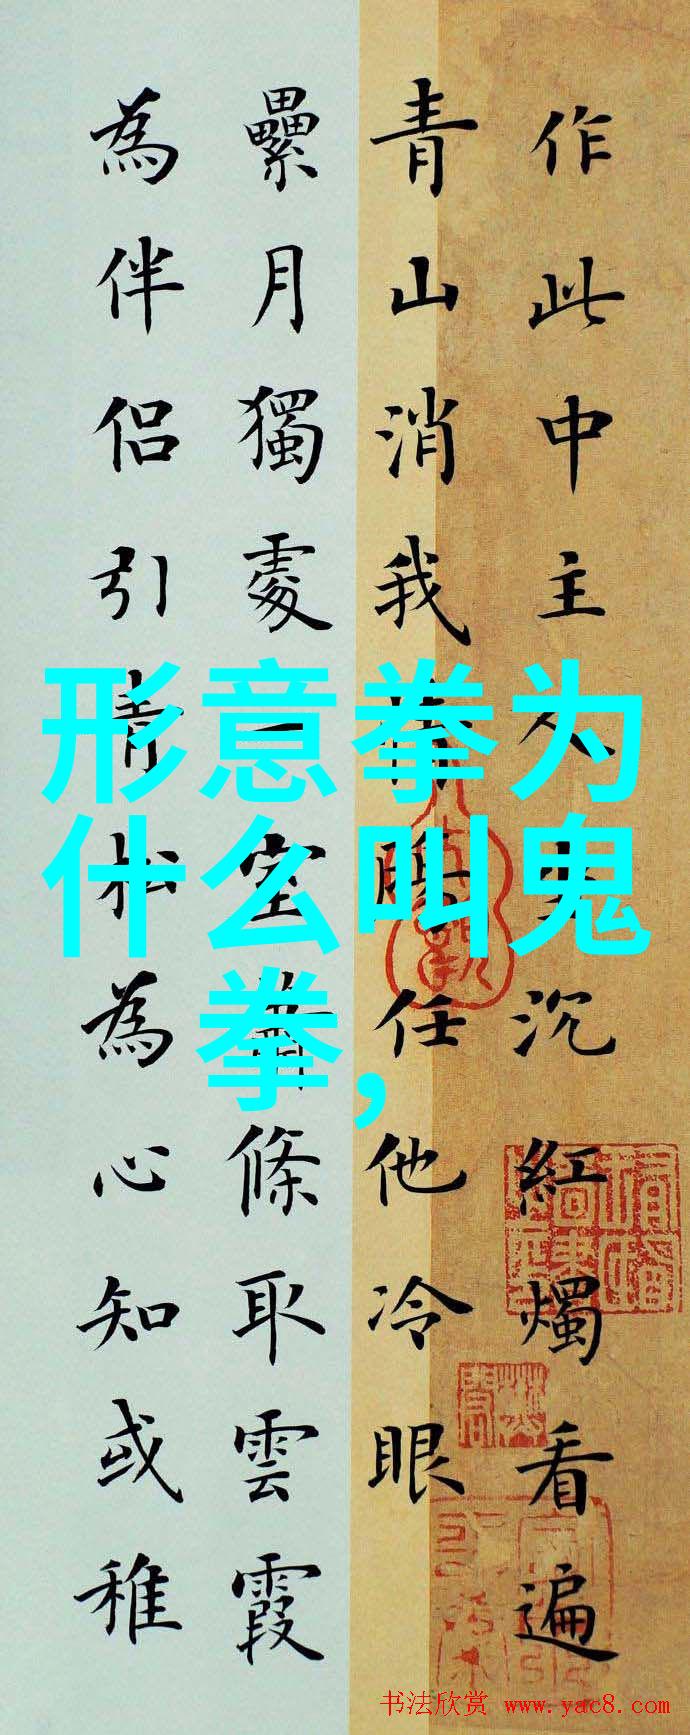 作此中主人沉紅燭看遍
青山消我任他冷眼
纍月獨處一室蕭條取雲霞
為伴侶引青松為心知或稚
形意拳为
什么叫鬼
拳,
书法欣赏 www.yac8.com